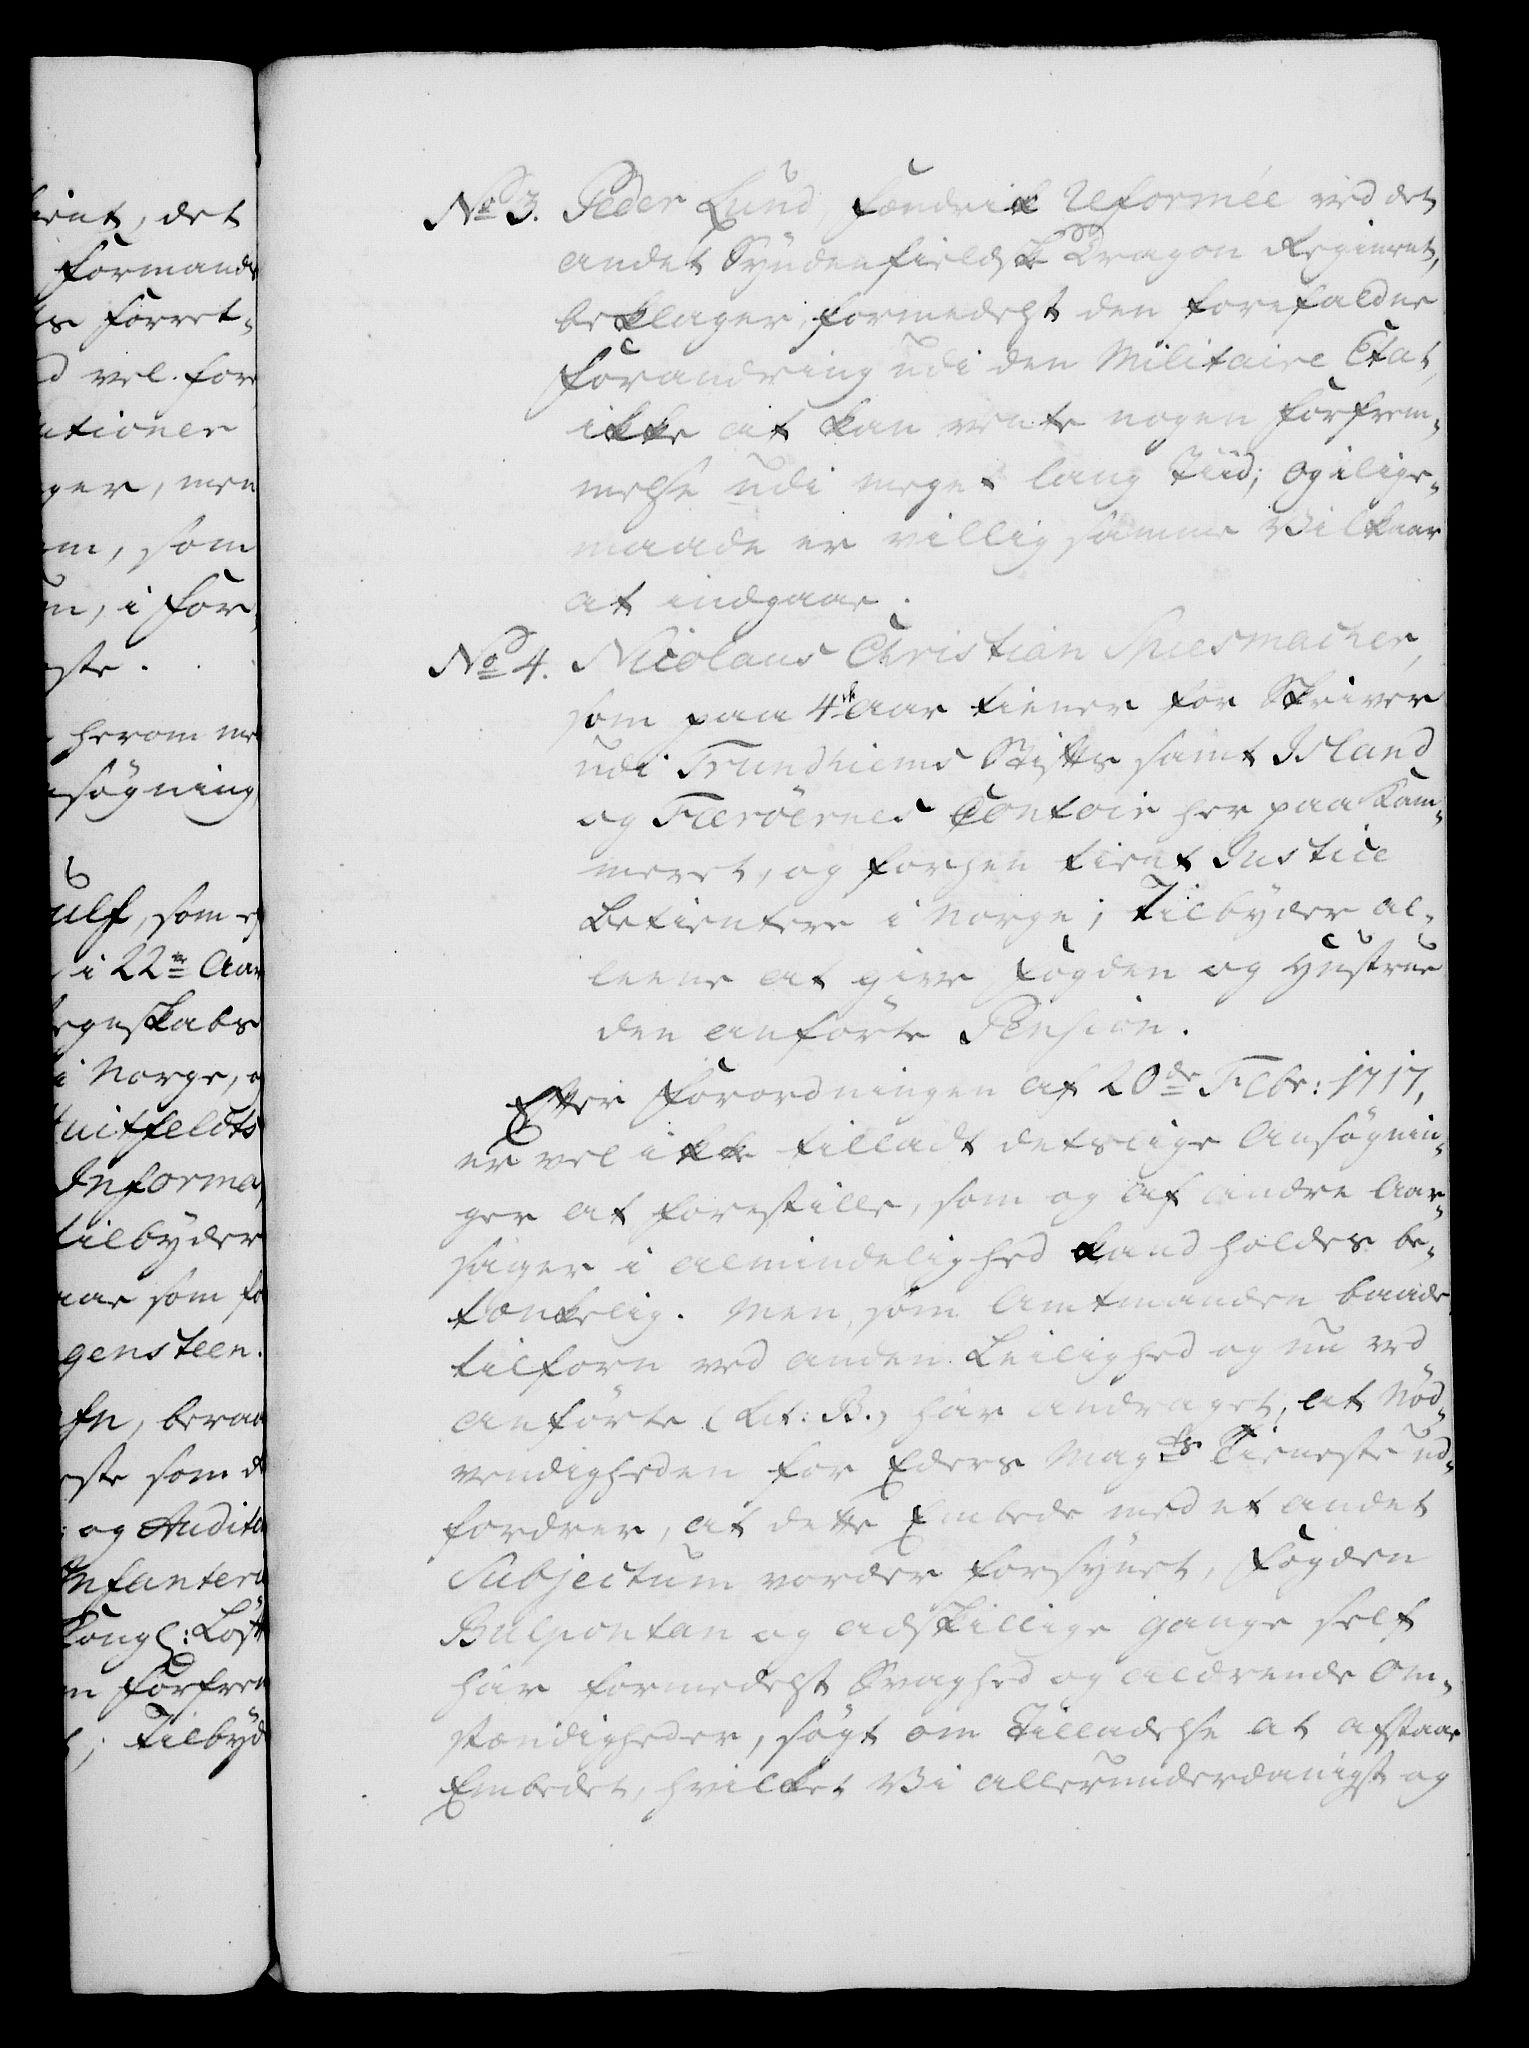 ient, det
formands
ts forret-
d vel. for
ationer
ger, men
om, som
en, i for,
ste.
herom me
nsøgning
ulf, som e
i 22de Aar
egnskabs
i Norge, o
uitfeldts
Informa,
tilbyder
aae som fo
gensteen.
afn, beraa
este som d
og Audite
Infanterie
Kongl: Løft
n forfrem
t; tilbyd
No 3. Peder Lund Fændrik Reformée ved det
andet Syndenfieldske Dragon Regiment,
beklager, formedelst den forefaldne
forandring udi den Militaire Etat,
ikke at kan vente nogen forfrem-
melse udi meget lang tiid; og i lige-
maade er villig samme Vilkaar
at indgaae.
No 4. Nicolaus Christian Spiesmacher,
som paa 4de Aar tiener for Skriver
udi Trundhiems Stifts samt Island
og Færöernes Contoir her paa Kam-
meret, og forhen tient Justice
Betientere i Norge; tilbyder al-
leene at give Fogden og Hustrue
den anförte Pension.
Efter Forordningen af 20de Febr: 1717,
er vel ikke tilladt detslige Ansøgnin-
ger at forestille, som og af andre Aar-
sager i almindelighed kand holdes be-
tænkelig. Men, som Amtmanden baade
tilforn ved anden Leilighed og nu ved
anförte Lit: B., har andraget, at Nød-
vendigheden for Eders Mayts Tieneste ud-
fordrer, at dette Embede med et andet
Subjectum vorder forsynet, Fogden
Bulpontan og adskillige gange self
har formedelst Svaghed og aldrende Om-
stændigheder, søgt om Tilladelse at afstaae
Embedet, hvilket Vi allerunderdanigst og